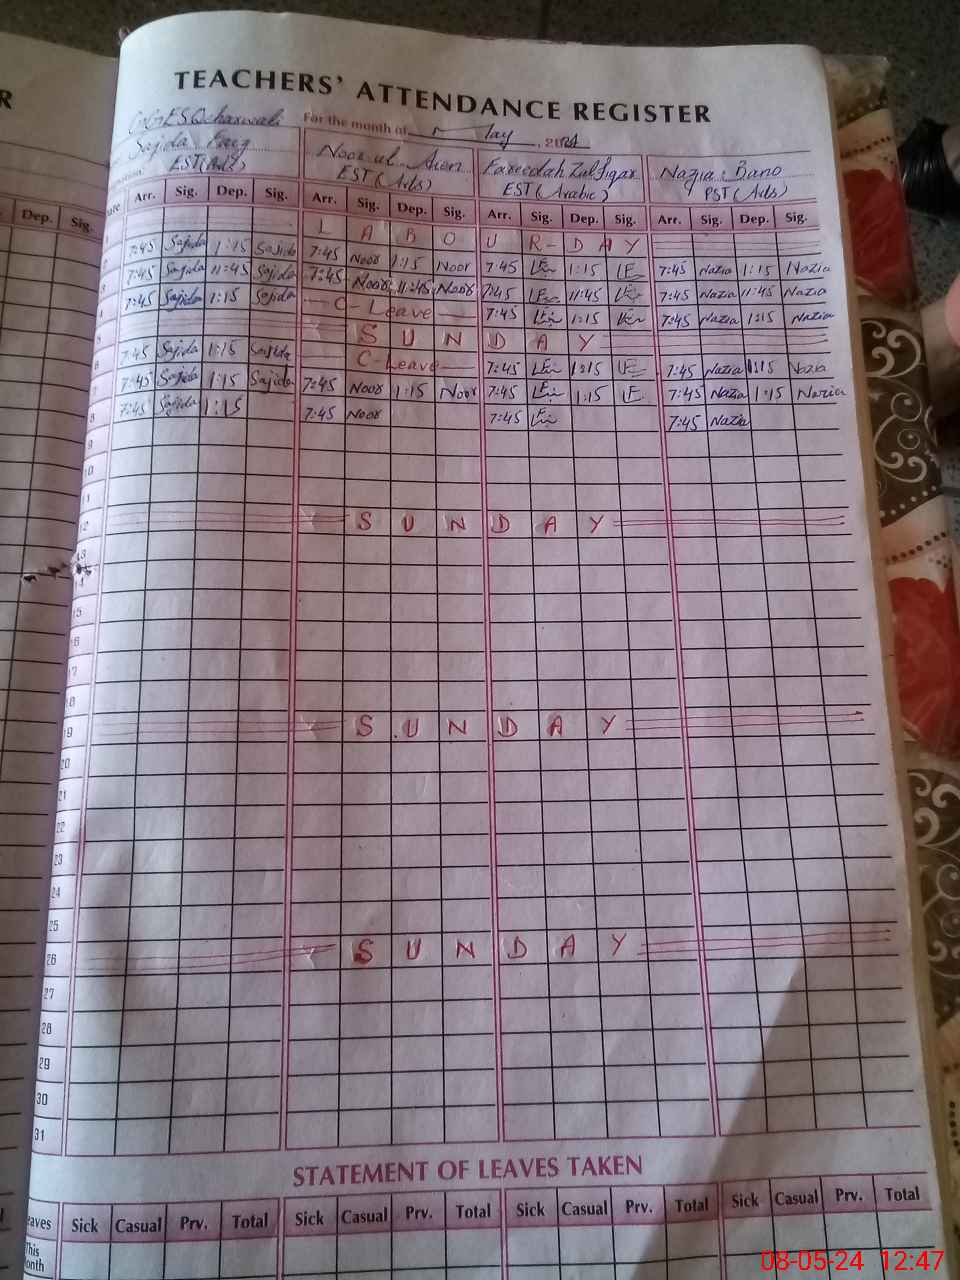 R
TEACHERS' ATTENDANCE REGISTER
For the month of May, 2024
Sajida
EST (Arts) Noor ul EST (Arts) Fareedah Zulfiqar EST (Arabic) Nazia Bano PST (Arts)
Dep. Sig. Arr. Sig. Dep. Sig. Arr. Sig. Dep. Sig. Arr. Sig. Dep. Sig. Arr. Sig. Dep. Sig.
L A B O U R - D A Y
2 7:45 Sajida 1:15 Sajida 7:45 Noor 1:15 Noor 7:45 1:15 7:45 Nazia 1:15 Nazia
3 7:45 Sajida 11:45 Sajida 7:45 Noor 11:45 Noor 7:45 11:45 7:45 Nazia 11:45 Nazia
4 7:45 Sajida 1:15 Sajida C-Leave 7:45 1:15 7:45 Nazia 1:15 Nazia
5 S U N D A Y
6 7:45 Sajida 1:15 Sajida C-Leave 7:45 1:15 7:45 Nazia 1:15 Nazia
7 7:45 Sajida 1:15 Sajida 7:45 Noor 1:15 Noor 7:45 1:15 7:45 Nazia 1:15 Nazia
8 7:45 Sajida 1:15 7:45 Noor 7:45 7:45 Nazia
9
10
11
12 S U N D A Y
13
14
15
16
17
18
19 S U N D A Y
20
21
22
23
24
25
26 S U N D A Y
27
28
29
30
31
STATEMENT OF LEAVES TAKEN
eaves Sick Casual Prv. Total Sick Casual Prv. Total Sick Casual Prv. Total Sick Casual Prv. Total
This
onth
08-05-24 12:47